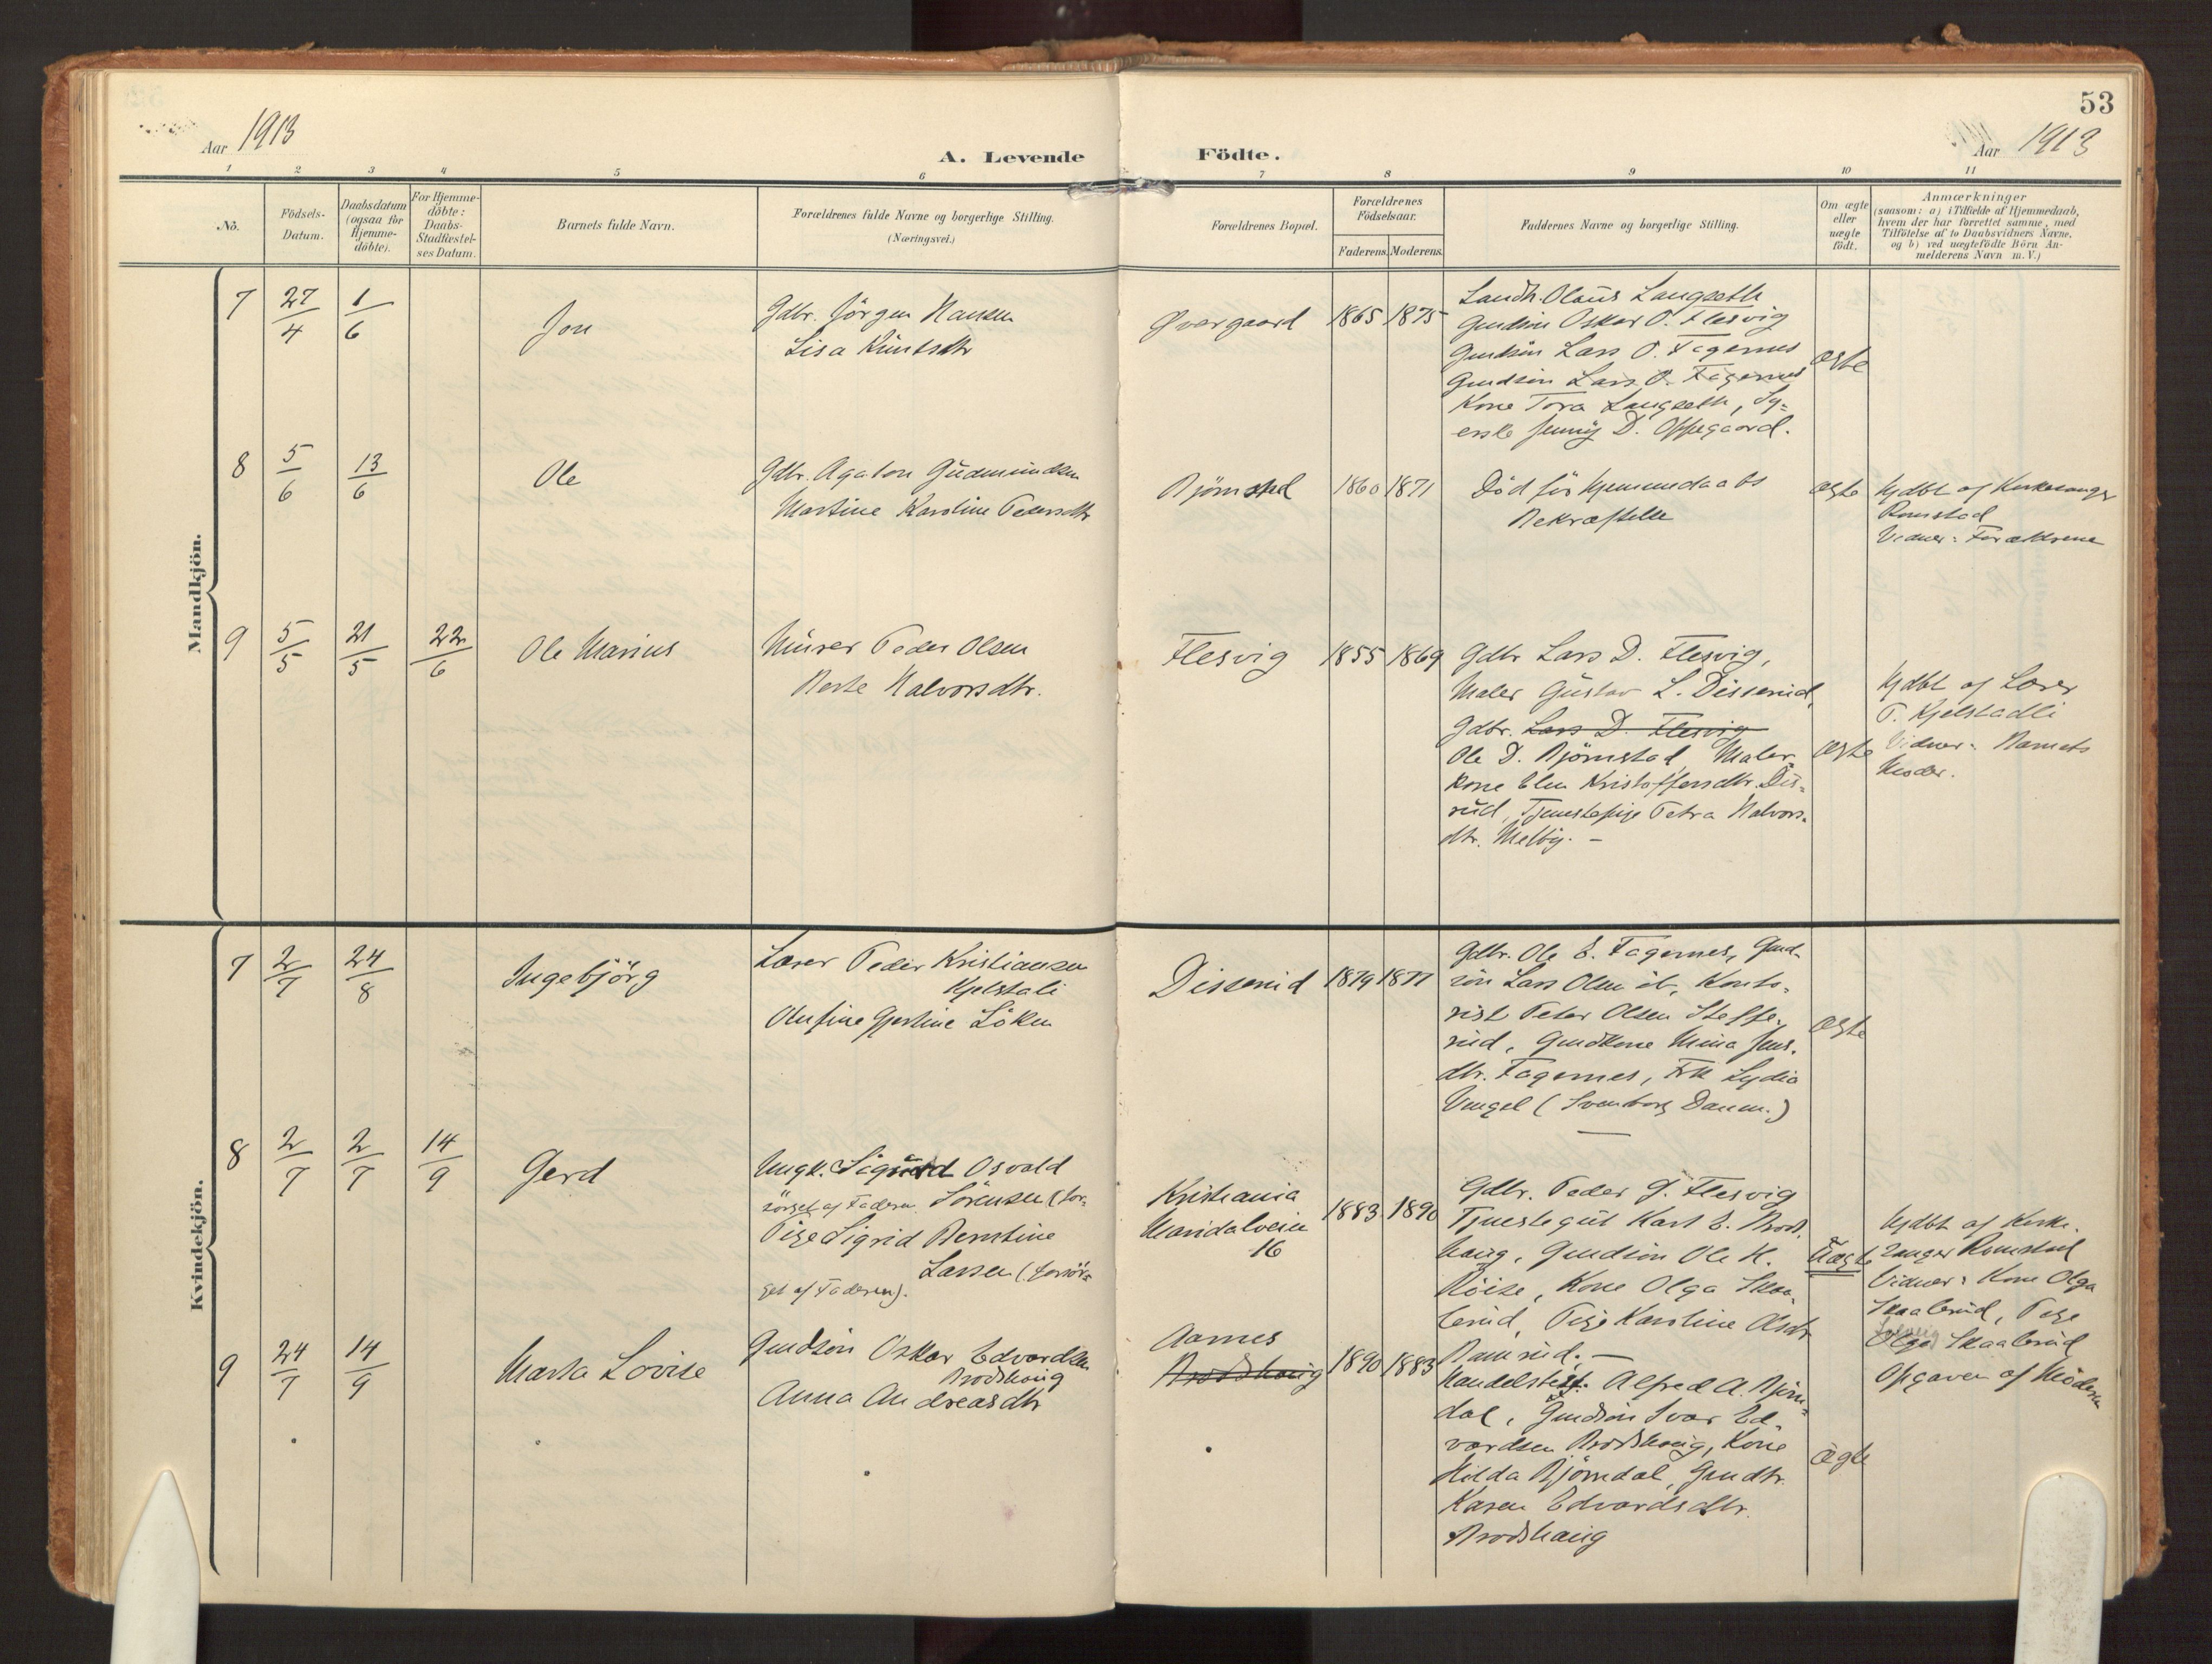 53
Aar 1913
Aar 1913
A. Levende Födte.
1 2 3 4 5 6 7 8 9 10 11
No.
Födsels-
Datum.
Daabsdatum
(ogsaa for
Hjemme-
döbte).
For Hjemme-
döbte:
Daabs-
Stadfæstel-
ses Datum.
Barnets fulde Navn.
Forældrenes fulde Navne og borgerlige Stilling.
(Næringsvei.)
Forældrenes Bopæl.
Forældrenes
Födselsaar.
Faderens. Moderens.
Faddernes Navne og borgerlige Stilling.
Om ægte
eller
uægte
födt.
Anmærkninger
(saasom: a) i Tilfælde af Hjemmedaab,
hvem der har forrettet samme, med
Tilföielse af to Daabsvidners Navne.
og b) ved uægtefödte Börn An-
melderens Navn m.V.)
Mandkjön.
7 27/4 1/6
Jon
Gdbr. Jörgen Hansen
Lisa Knutsdtr
Øvergaard
1865 1875
Landh. Olaus Langseth
Gaardsön Oskar O. Flesvig
Gaardsön Lars O. Fagernes
Gaardsön Lars O. Fagernes
Kone Tora Langseth, Sy-
erske Jenny D. Oppegaard.
ægte
8 5/6 13/6
Ole
Gdbr. Agaton Gudmundsen
Martine Karoline Pedersdtr
Bjørnstad
1860 1871
Död før hjemmedaabs
Bekræftelse
ægte
Hjdbt af Kirkesanger
Romstad
Vidner: Forældrene
9 5/5 21/5 22/6
Ole Marius
Murer Peder Olsen
Berte Halvorsdtr.
Flesvig
1855 1869
Gdbr Lars D. Flesvig,
Maler Gustav L. Disserud,
Gdbr. Lars D. Flesvig
Ole D. Bjørnstad, Maler-
kone Elen Kristoffersdtr. Dis-
rud, Tjenestepige Petra Halvors-
dtr. Melby. –
ægte
Hjdbt af Lærer
P. Kjelstadli
Vidner: Barnets
Moder.
Kvindekjön.
7 2/7 24/8
Ingebjörg
Lærer Peder Kristiansen
Kjelstali
Olufine Gjertine Löken
Disserud
1879 1877
Gdbr. Ole E. Fagernes, Gaard-
sön Lars Olsen ib, Konto-
rist Peter Olsen Steffe-
rud, Gaardkone Mina Jens-
dtr. Fagernes, Frk Lydia
Vengel (Svenborg Danm.)
ægte
8 2/7 2/7 14/9
Gerd
Ungk. Sigurd Osvald
Sörensen (for-
sörget af Faderen.
Pige Sigrid Berntine
Larsen (forsör-
get af Faderen).
Kristiania
Maridalveien
16
1883 1890
Gdbr. Peder G. Flesvig
Tjenestegut Karl E. Brods-
haug, Gaardsön Ole H.
Röise, Kone Olga Skaa-
lerud, Pige Karoline Olsdtr
Ramrud. –
Uægte
Hjdbt af Kirke-
sanger Romstad
Vidner: Kone Olga
Skaalerud, Pige
Solveig
Olga Skaalerud
Opgaven af Moderen
9 24/7 14/9
Marta Lovise
Gaardsön Oskar Edvardsen
Brodshaug
Anna Andreasdtr
Aarnes
Brodshaug
1890 1883
Handelsbest. Alfred A. Bjørn-
dal, Gaardsön Ivar Ed-
vardsen Brodshaug, Kone
Hilda Bjørndal, Gaardtr.
Karen Edvardsdtr.
Brodshaug
ægte